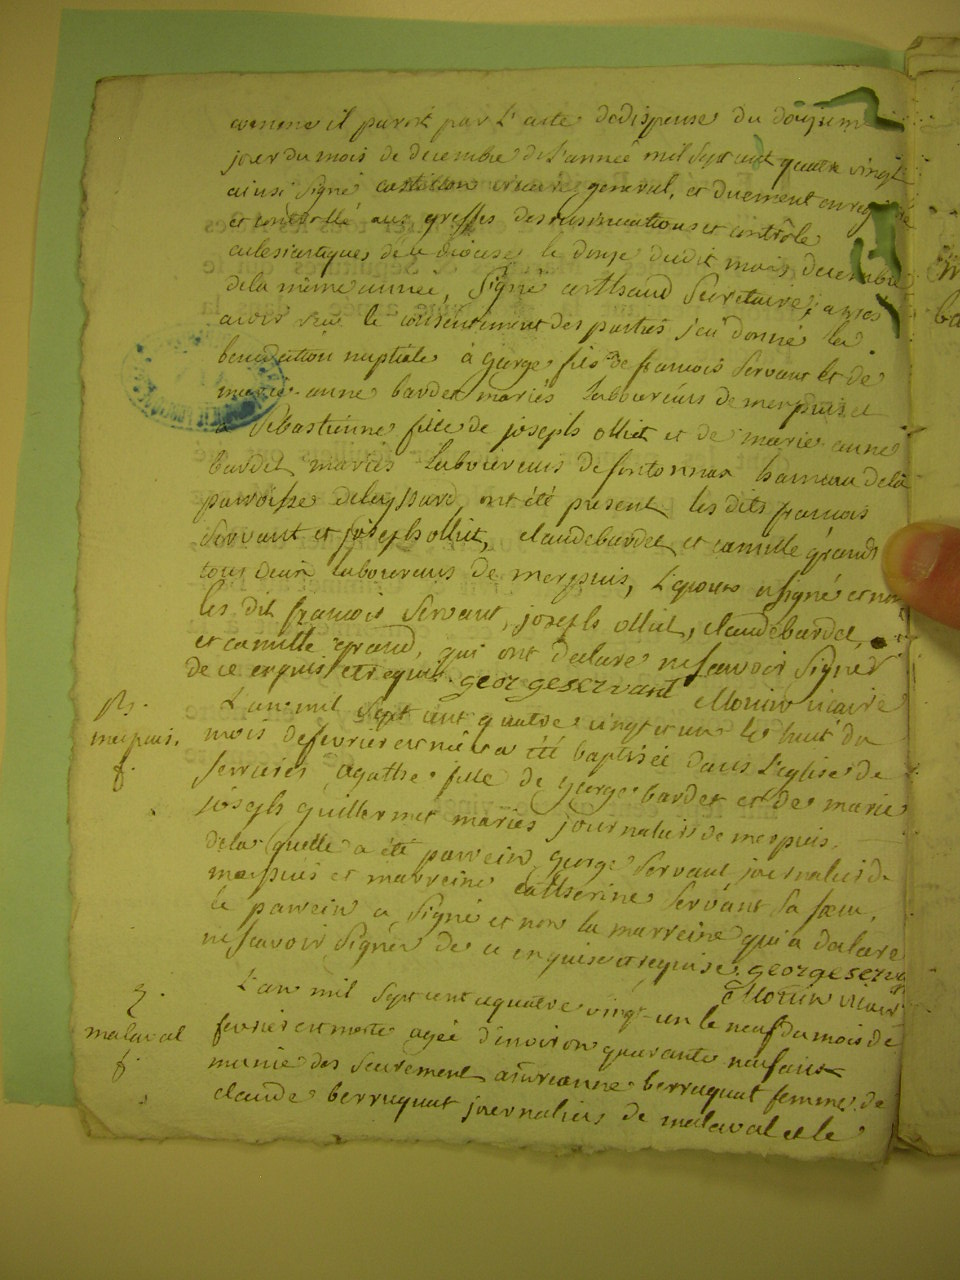 comme il paroit par L'acte dedispense du douziem
jour du mois de decembre de L'année mil sept cent quatre vingt
ainsi signé castillon vicaire general, et duement enregistré
et contrôllé aux greffes des insinuations et contrôle
eclesiastiques de le diocese le douze dudit mois decembre
dela même année, Signé arthaud Secretaire; apres
avoir reçu le consentement des parties j'ai donné la
benediction nuptiale à george fils de francois Servant et de
marie-anne bardet mariés Laboureurs de merpuis et
a Sebastienne fille de joseph olliet et de marie anne
bardet mariés Laboureurs de fontonnax hameau dela
parroisse deleyssard, ont été present les dits francois
Servant et joseph olliet, claude bardet et camille grand
tous deux laboureurs de merpuis, L'epoux a signé et non
les dit francois Servant, joseph olliet, claude bardet
et camille grand, qui ont declare ne savoir signer
de ce enquis et requis. georgeservant Morin vicaire
B.
merpuis.
f.
L'an mil sept cent quatre vingt et un le huit du
mois defevrier est née et a été baptisée dans L'eglise de
serrieres agathe fille de george bardet et de marie
joseph guillermet mariés journaliers de merpuis.
dela quelle a été parrein george Servant journalier de
merpuis et marreine catherine Servant sa soeur,
le parrein a signé et non la marreine qui a declare
ne savoir signer de ce enquise et requise. georgeserva
Morin vicaire
S.
malaval
f.
L'an mil sept cent quatre vingt-un le neuf du mois de
fevrier est morte agée d'environ quarante neuf ans
munie des sacrement antoinne berruquat femme de
claude berruquat journaliers de malaval et le